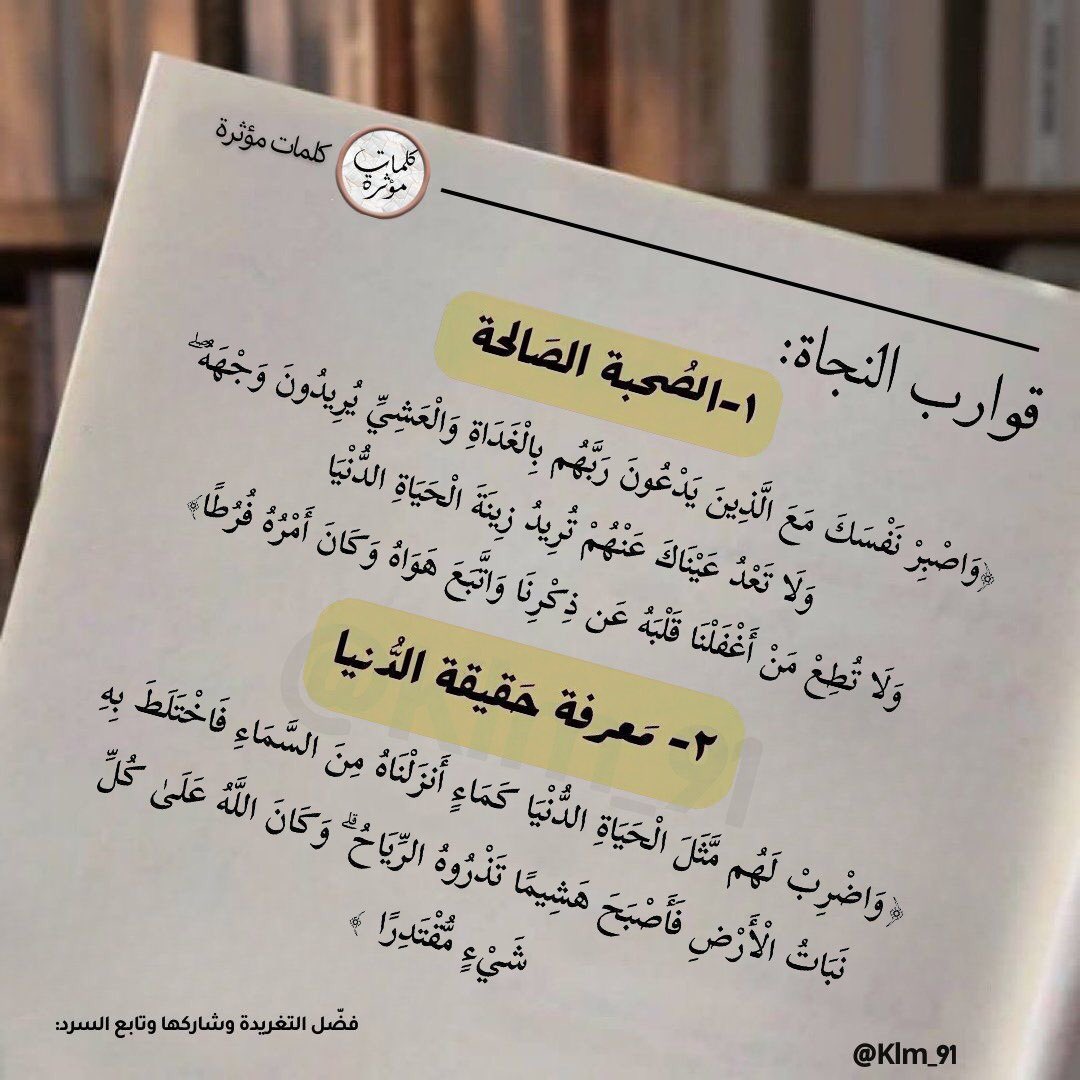 كلمات مؤثرة
كلمات
مؤثرة
قوارب النجاة:
١-الصُحبة الصَالحة
﴿وَاصْبِرْ نَفْسَكَ مَعَ الَّذِينَ يَدْعُونَ رَبَّهُم بِالْغَدَاةِ وَالْعَشِيِّ يُرِيدُونَ وَجْهَهُ ۖ
وَلَا تَعْدُ عَيْنَاكَ عَنْهُمْ تُرِيدُ زِينَةَ الْحَيَاةِ الدُّنْيَا
وَلَا تُطِعْ مَنْ أَغْفَلْنَا قَلْبَهُ عَن ذِكْرِنَا وَاتَّبَعَ هَوَاهُ وَكَانَ أَمْرُهُ فُرُطًا﴾
٢- مَعرفة حَقيقة الدُّنيا
﴿وَاضْرِبْ لَهُم مَّثَلَ الْحَيَاةِ الدُّنْيَا كَمَاءٍ أَنزَلْنَاهُ مِنَ السَّمَاءِ فَاخْتَلَطَ بِهِ
نَبَاتُ الْأَرْضِ فَأَصْبَحَ هَشِيمًا تَذْرُوهُ الرِّيَاحُ ۗ وَكَانَ اللَّهُ عَلَىٰ كُلِّ
شَيْءٍ مُّقْتَدِرًا ﴾
@Klm_91
فضّل التغريدة وشاركها وتابع السرد:
@Klm_91